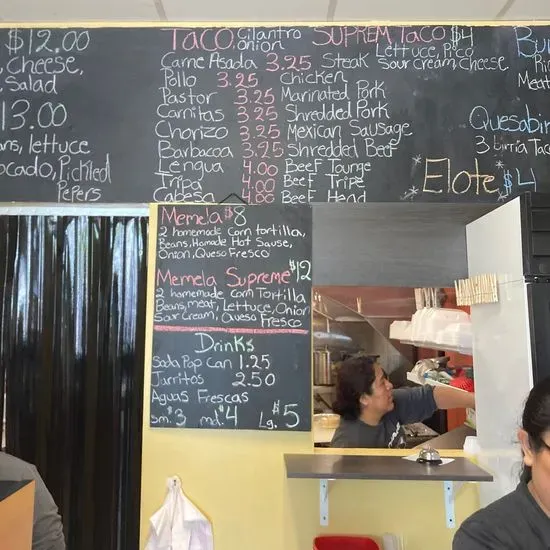 $12.00
, Cheese,
, Salad
13.00
ns, lettuce
ocado, Pickled
Pepers
Taco. Cilantro
onion
Carne Asada 3.25 Steak
Pollo 3.25 Chicken
Pastor 3.25 Marinated Pork
Carnitas 3.25 Shredded Pork
Chorizo 3.25 Mexican Sausage
Barbacoa 3.25 Shredded Beef
Lengua 4.00 Beef Tounge
Tripa 4.00 Beef Tripe
Cabesa 4.00 Beef Head
Suprem Taco $4
Lettuce, Pico
Sour Cream, Cheese
Bu
Ri
Meat
Quesabir
3 birria Taco
Elote $4
Memela $8
2 homemade Corn tortilla,
Beans, Homade Hot Sause,
Onion, Queso Fresco
Memela Supreme $12
2 homemade Corn Tortilla
Beans, meat, Lettuce, Onion
Sour Cream, Queso Fresco
Drinks
Soda Pop Can 1.25
Jarritos 2.50
Aguas Frescas
sm. $3 md. $4 Lg. $5